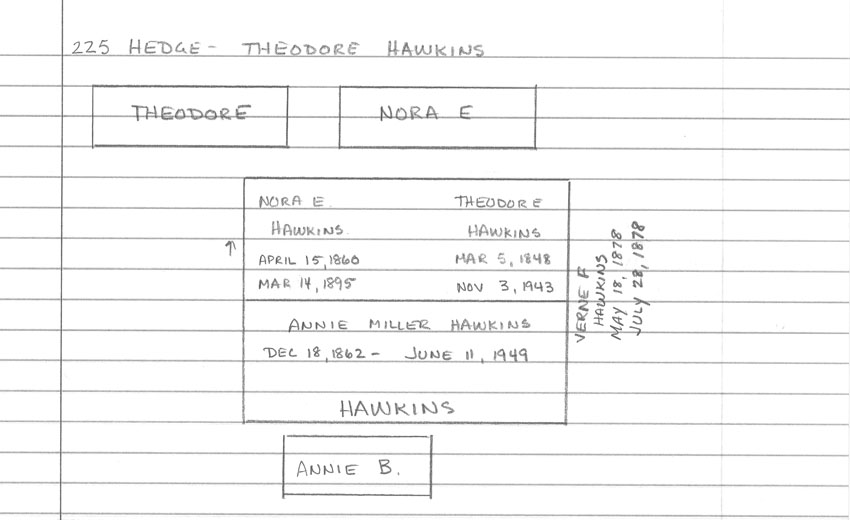 225 HEDGE - THEODORE HAWKINS
THEODORE
NORA E
NORA E.
HAWKINS.
APRIL 15, 1860
MAR 14, 1895
THEODORE
HAWKINS
MAR 5, 1848
NOV 3, 1943
ANNIE MILLER HAWKINS
DEC 18, 1862 - JUNE 11, 1949
HAWKINS
VERNE F
HAWKINS
MAY 18, 1878
JULY 28, 1878
ANNIE B.